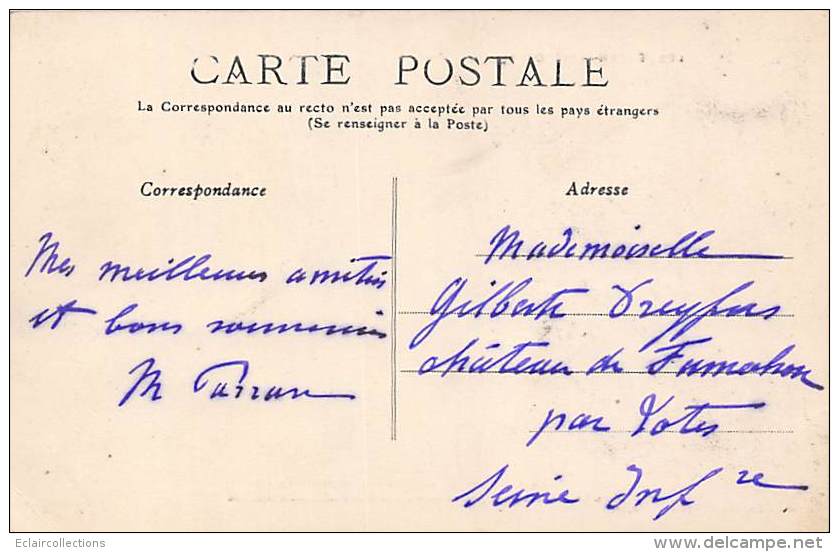 CARTE POSTALE
La Correspondance au recto n'est pas acceptée par tous les pays étrangers
(Se renseigner à la Poste)
Correspondance
Adresse
Mes meilleures amitiés
et bons souvenirs
M
Mademoiselle
Gilberte Dreyfus
château de
par
Seine Infre
Eclaircollections
delcampe.net